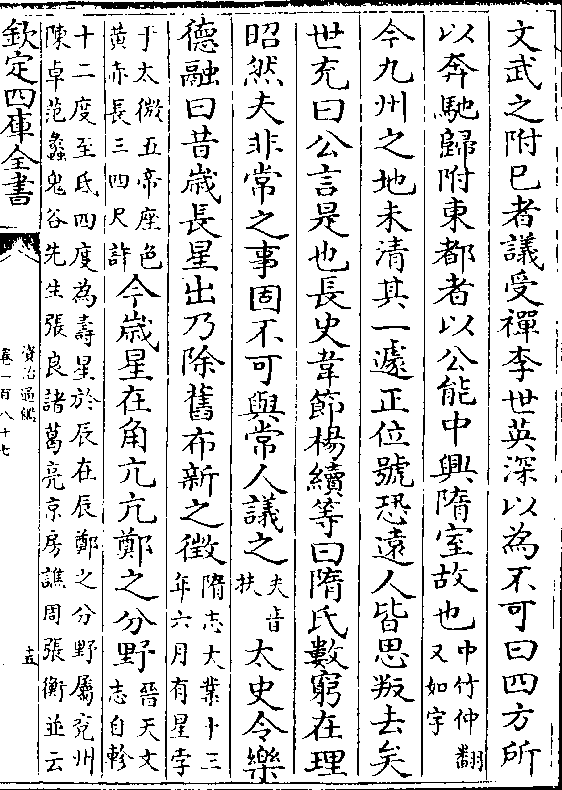 文武之附已者議受禪李世英深以為不可曰四方所
以奔馳歸附東都者以公能中興隋室故也中竹仲翻
又如字
今九州之地未清其一遽正位號恐遠人皆思叛去矣
世充曰公言是也長史韋節楊續等曰隋氏數窮在理
昭然夫非常之事固不可與常人議之夫音
扶太史令樂
德融曰昔歲長星出乃除舊布新之徵隋志大業十三
年六月有星孛
于太微五帝座色
黃赤長三四尺許今歲星在角亢亢鄭之分野晉天文
志自軫
十二度至氐四度為壽星於辰在辰鄭之分野屬兗州
陳卓范蠡鬼谷先生張良諸葛亮京房譙周張衡並云
欽定四庫全書
資治通鑑
卷一百八十七
十五